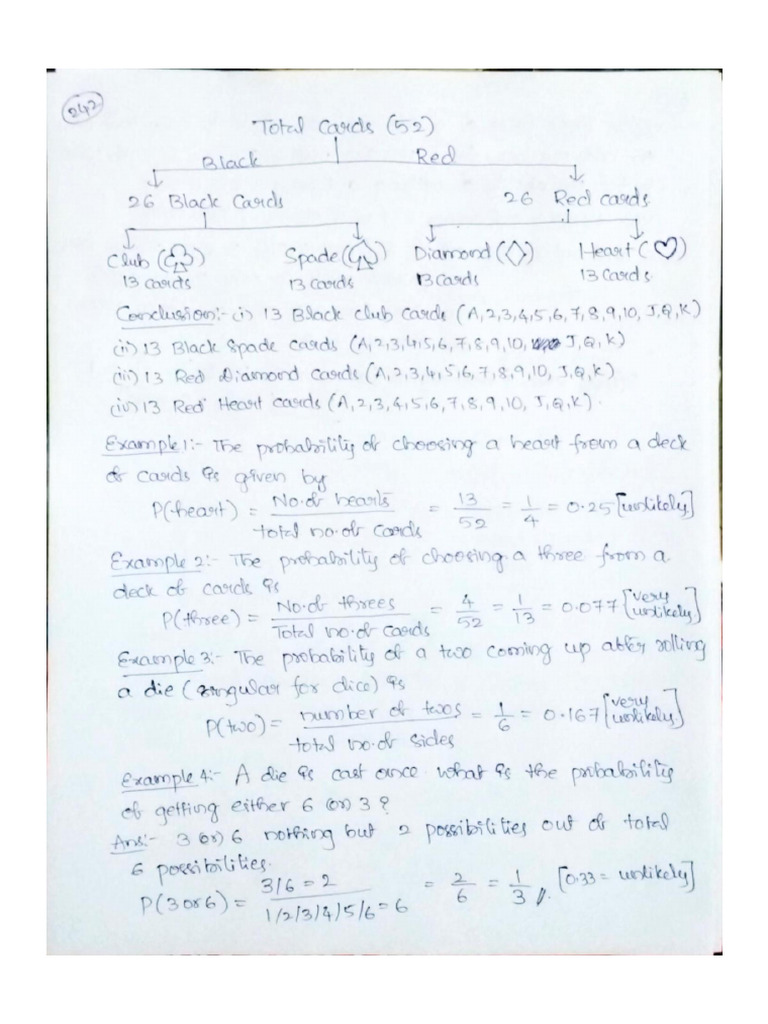 242
Total Cards (52)
Black Red
26 Black Cards 26 Red cards
Club (♧) Spade (♤) Diamond (◇) Heart (♡)
13 cards 13 cards 13 cards 13 cards
Conclusion:- (i) 13 Black club cards (A,2,3,4,5,6,7,8,9,10, J,Q,K)
(ii) 13 Black Spade cards (A,2,3,4,5,6,7,8,9,10, J,Q,K)
(iii) 13 Red Diamond cards (A,2,3,4,5,6,7,8,9,10, J,Q,K)
(iv) 13 Red Heart cards (A,2,3,4,5,6,7,8,9,10, J,Q,K).
Example 1:- The probability of choosing a heart from a deck
of cards is given by
P(heart) = No. of hearts / total no. of cards = 13/52 = 1/4 = 0.25 [unlikely]
Example 2:- The probability of choosing a three from a
deck of cards is
P(three) = No. of threes / Total no. of cards = 4/52 = 1/13 = 0.077 [very unlikely]
Example 3:- The probability of a two coming up after rolling
a die (singular for dice) is
P(two) = number of twos / total no. of sides = 1/6 = 0.167 [very unlikely]
Example 4:- A die is cast once what is the probability
of getting either 6 (or) 3 ?
Ans:- 3 (or) 6 nothing but 2 possibilities out of total
6 possibilities.
P(3 or 6) = 3/6 = 2 / 1/2/3/4/5/6 = 6 = 2/6 = 1/3 // [0.33 = unlikely]